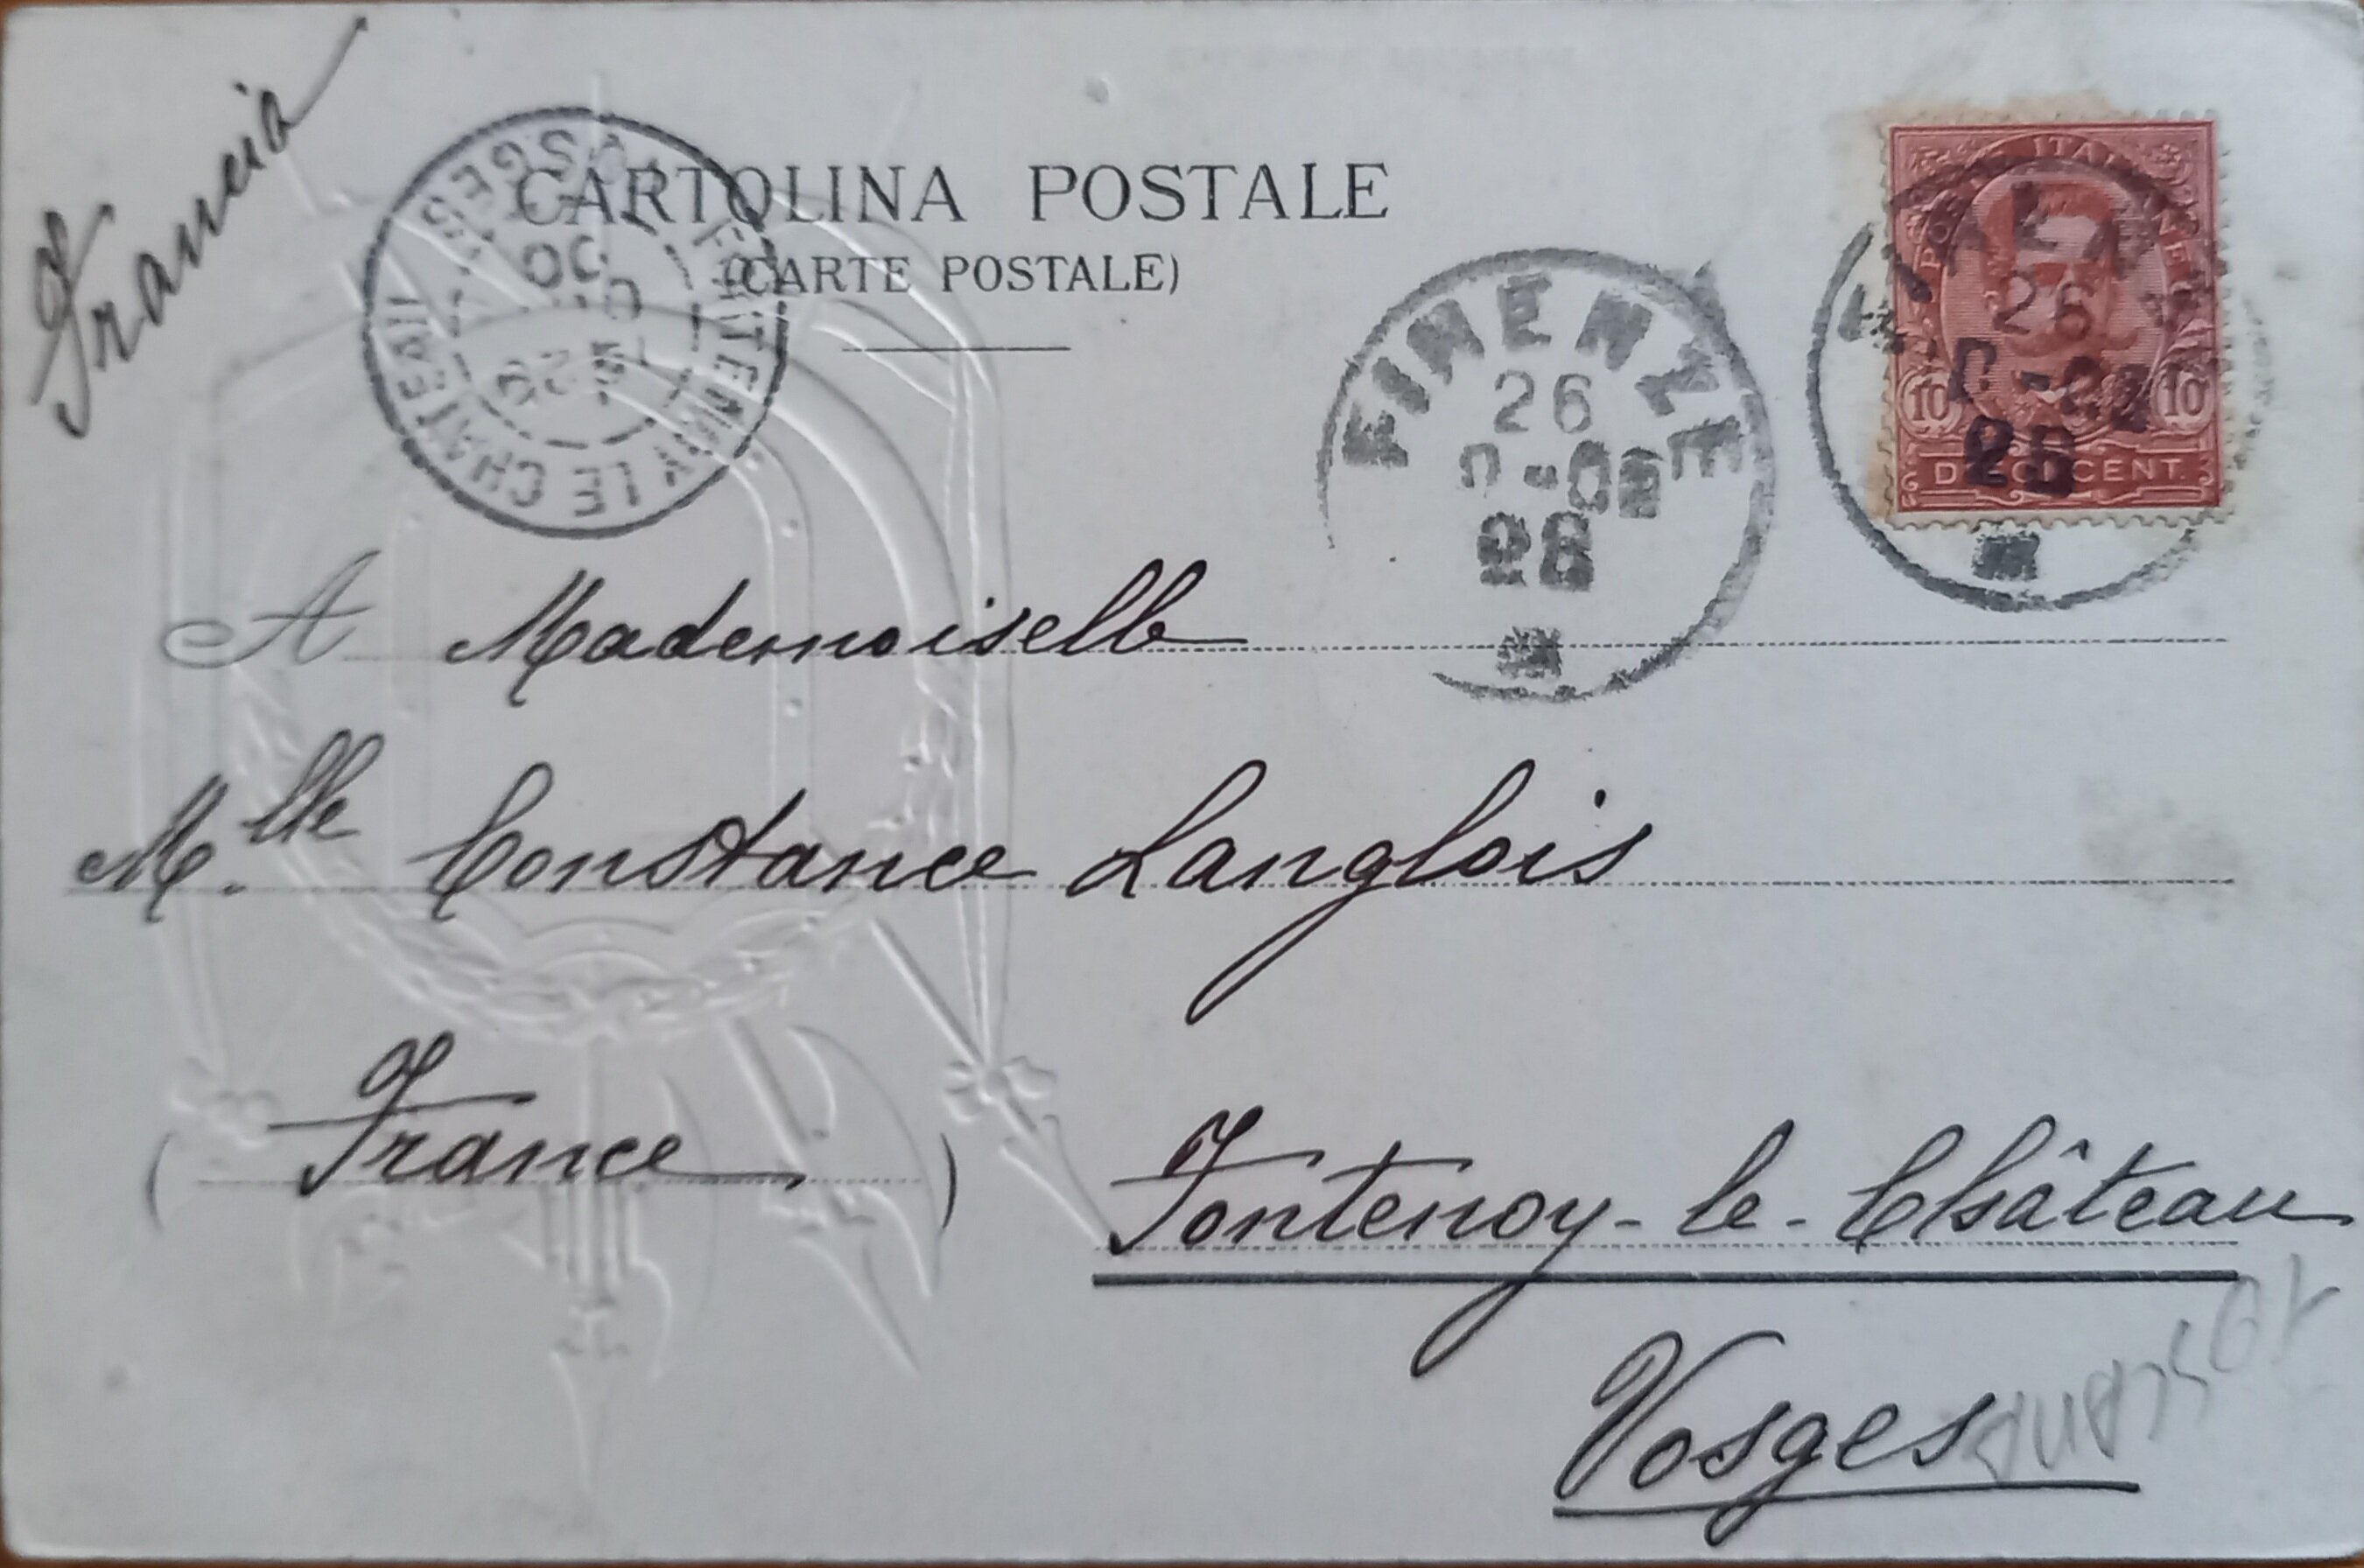 Francia
CARTOLINA POSTALE
(CARTE POSTALE)
FONTENOY LE CHATEAU
VOSGES
FIRENZE
26
POSTE ITALIANE
26
10
10
DIECI CENT.
A Mademoiselle
M.lle Constance Langlois
(France)
Fontenoy-le-Château
Vosges